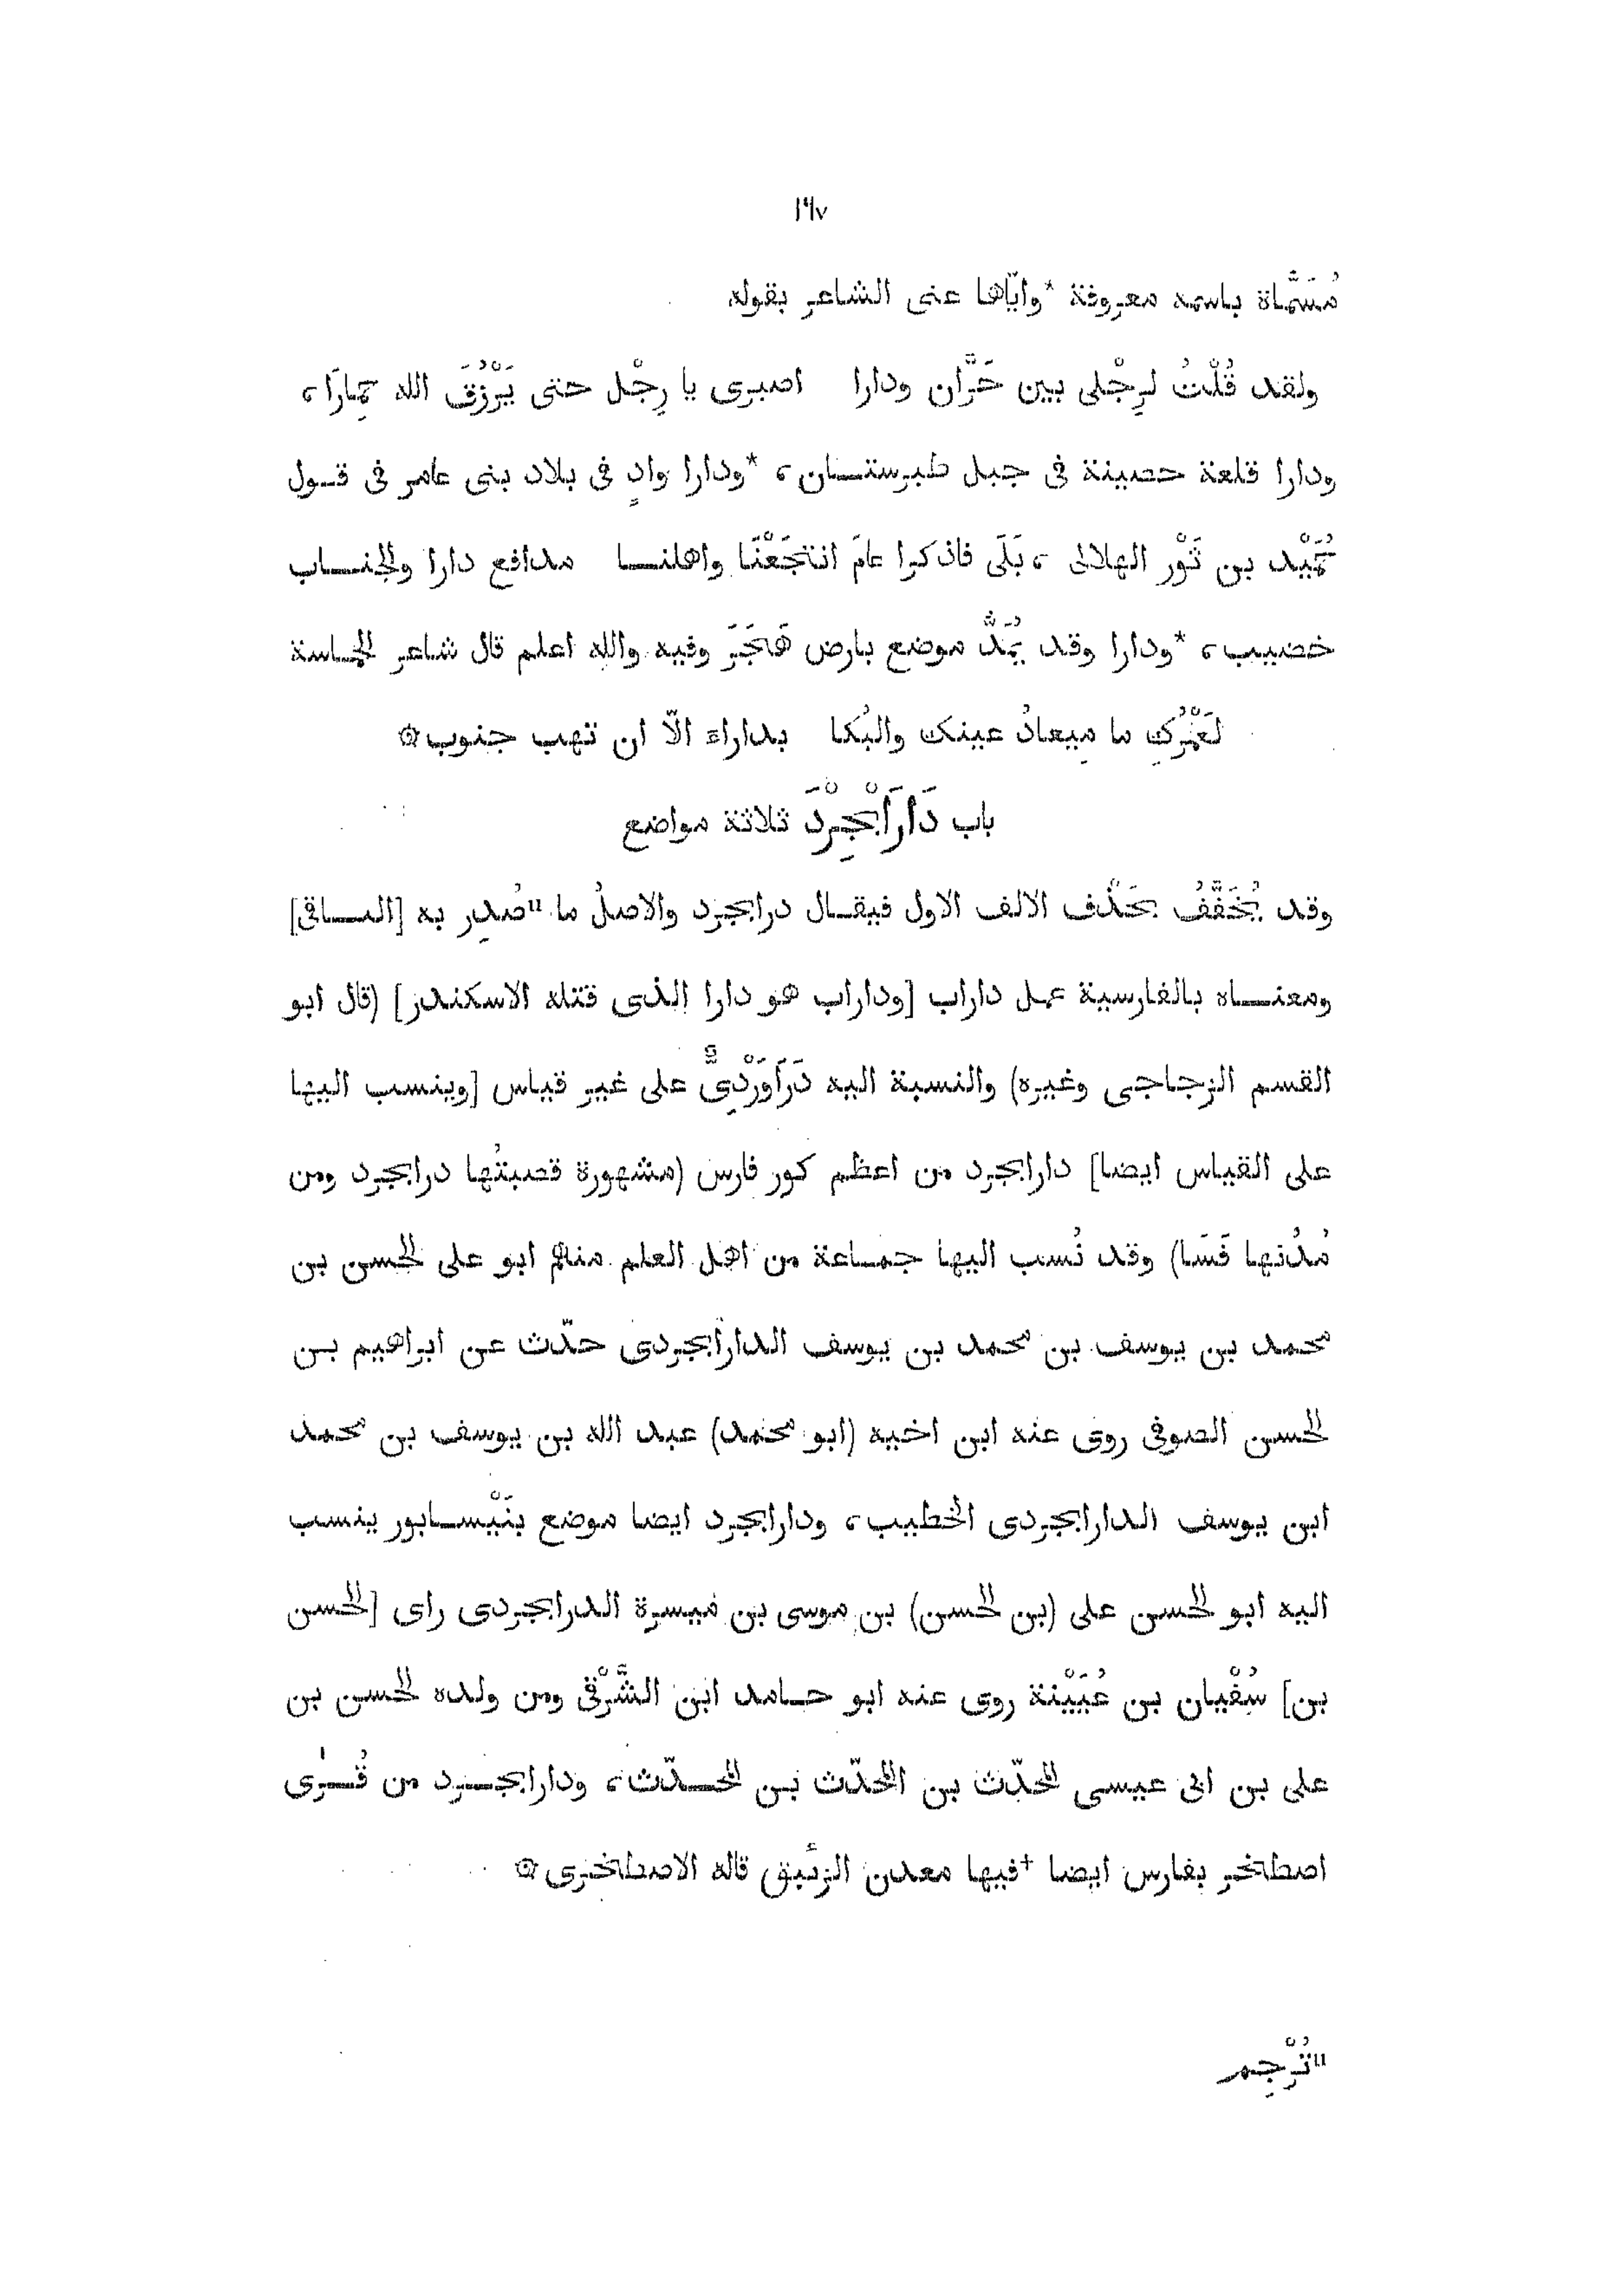 ١٦٧
مُسَمَّاة باسمه معروفة *وايّاها عنى الشاعر بقوله
ولقد قُلْتُ لرِجْلى بين حَرَّان ودارا اصبرى يا رِجْل حتى يَرْزُقَ الله حِمارَا،
ودارا قلعة حصينة فى جبل طبرستان، *ودارا وادٍ فى بلاد بنى عامر فى قول
حُمَيْد بن ثَوْر الهلالى، بَلَى فاذكرا عامَ انتَجَعْنَا واهلنا مدافع دارا والجناب
خصيب، *ودارا وقد يُمَدُّ موضع بارض هَجَرَ وفيه والله اعلم قال شاعر الحماسة
لَعَمْرُكِ ما مِيعادُ عينك والبُكا بداراء الّا ان تهب جنوب۞
باب دَارَابْجِرْدَ ثلاثة مواضع
وقد يُخَفَّفُ بحَذْف الالف الاول فيقال درابجرد والاصلُ ما ¹¹صُدِر به [الباقى]
ومعناه بالفارسية عمل داراب [وداراب هو دارا الذى قتله الاسكندر] (قال ابو
القسم الزجاجى وغيره) والنسبة اليه دَرَاوَرْدِىٌّ على غير قياس [وينسب اليها
على القياس ايضا] دارابجرد من اعظم كور فارس (مشهورة قصبتُها درابجرد ومن
مُدُنها فَسَا) وقد نُسب اليها جماعة من اهل العلم منهم ابو على الحسن بن
محمد بن يوسف بن محمد بن يوسف الدارابجردى حدّث عن ابراهيم بن
الحسن الصوفى روى عنه ابن اخيه (ابو محمد) عبد الله بن يوسف بن محمد
ابن يوسف الدارابجردى الخطيب، ودارابجرد ايضا موضع بنَيْسابور ينسب
اليه ابو الحسن على (بن الحسن) بن موسى بن ميسرة الدرابجردى راى [الحسن
بن] سُفْيان بن عُيَيْنة روى عنه ابو حامد ابن الشَّرْقى ومن ولده الحسن بن
على بن ابى عيسى المحدّث بن المحدّث بن المحدّث، ودارابجرد من قُرَى
اصطخر بفارس ايضا †فيها معدن الزئبق قاله الاصطخرى۞
¹¹تُرْجِم